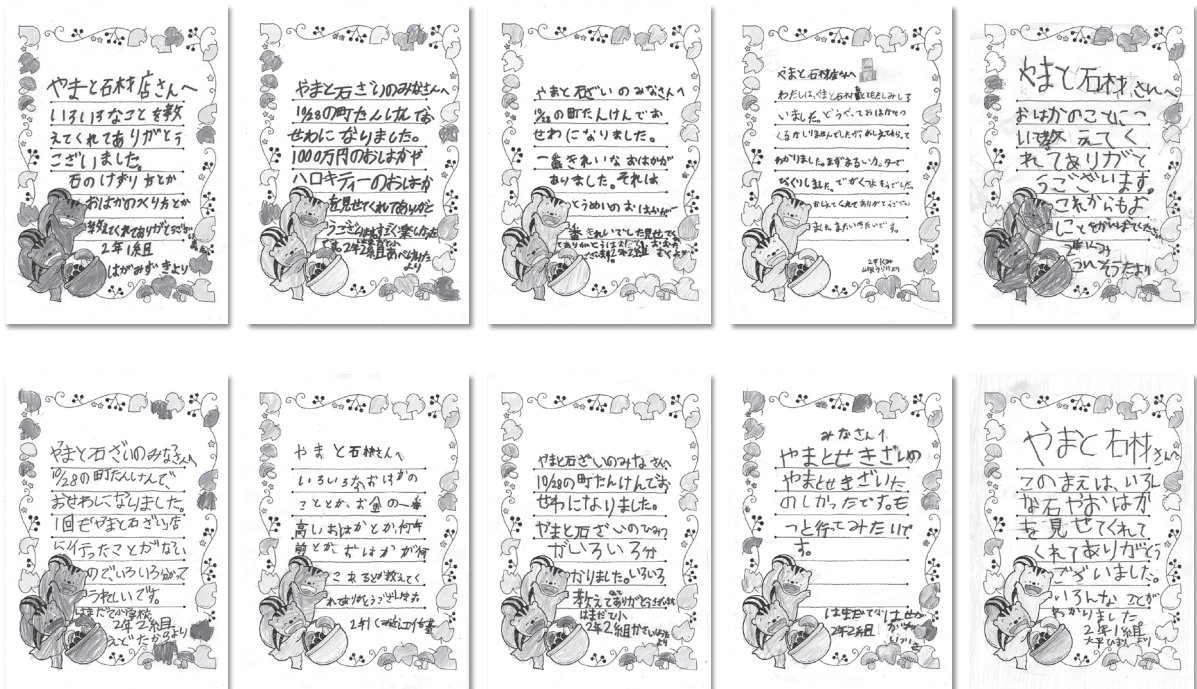 やまと石材店さんへ
いろいろなことを教
えてくれてありがとう
ございました。
石のけずり方とか
おはかのつくり方とか
教えてくれてありがとうござい
2年1組
はがみずきより
やまと石ざいのみなさんへ
10/28の町たんけんでお
せわになりました。
1000万円のおはかや
ハロキティーのおはか
を見せてくれてありがと
うございます
2年2組
より
やまと石ざいのみなさんへ
10/28の町たんけんでお
せわになりました。
一番きれいなおはかが
ありました。それは
とうめいのおはかだ
一番きれいでした見せてく
てありがとう
2年2組
より
やまと石材店さんへ
わたしは、やまと石材店をたのしみにして
いました。どうやっておはかをつ
くるかしりませんでしたがおしえてもらって
わかりました。まずまるいカッターで
びっくりしました。
おしえてくれてありがとうござい
ました。またいきたいです。
2年1くみ
より
やまと石材さんへ
おはかのことにつ
いて教えてく
れてありがと
うございます。
これからもお
しごとをがんばってください
2年1くみ
より
やまと石ざいのみなさんへ
10/28の町たんけんで
おせわになりました。
1回もやまと石ざい店
に行ったことがない
のでいろいろ分かって
うれしいです。
はまだて小学校
2年2組
えどたからより
やまと石材さんへ
いろいろなおはかの
こととか、お金の一番
高いおはかとか、何年
前とか、おはかが何
こあるとか教えてく
れてありがとうございました
2年1くみ
やまと石ざいのみなさんへ
10/28の町たんけんでお
せわになりました。
やまと石ざいのひみつ
がいろいろ分
かりました。いろいろ
教えてありがとうございます
はまだて小
2年2組
より
みなさんへ
やまとせきざいめ
やまとせきざいた
のしかったです。も
っと行ってみたいで
す。
はまだて小
2年2組
やまと石材さんへ
このまえは、いろん
な石やおはか
を見せてくれて
くれてありがとう
ございました。
いろんなことが
わかりました
2年1組
より